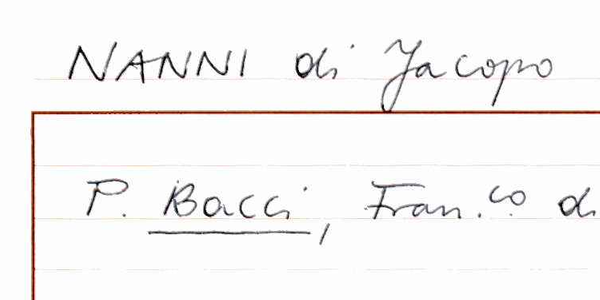 NANNI di Jacopo
P. Bacci, Fran.co di